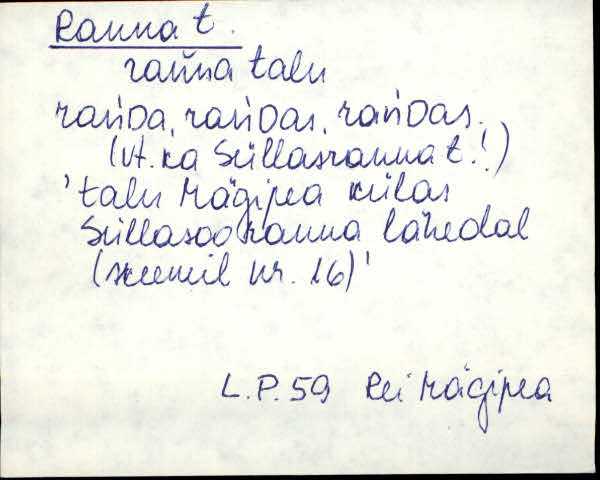 Ranna t.
rańna talu
rańda, rańdas, rańdas.
(vt. ka Süllasranna t.!)
'talu Mägipea külas
Süllasoo ranna lähedal
(skeemil nr. 16)'
L.P. 59 Rei Mägipea